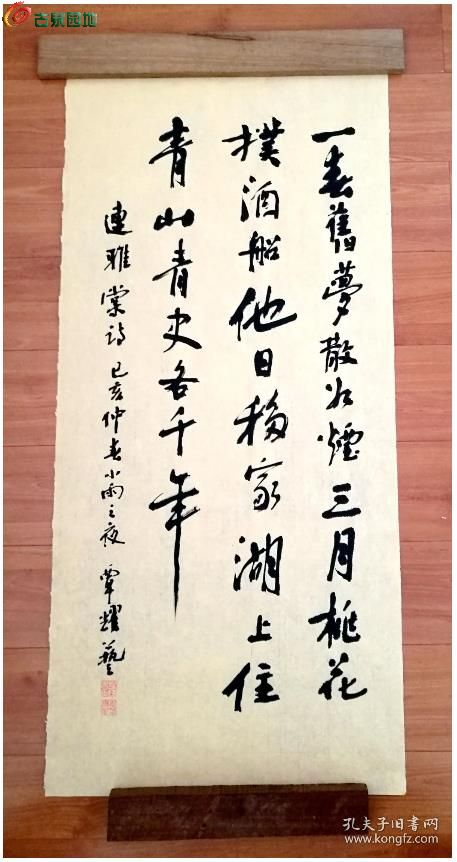 古泉园地
一春舊夢散如煙三月桃花
撲酒船他日移家湖上住
青山青史各千年
連雅棠詩 己亥仲春小雨之夜 覃耀藝
孔夫子旧书网
kongfz.com